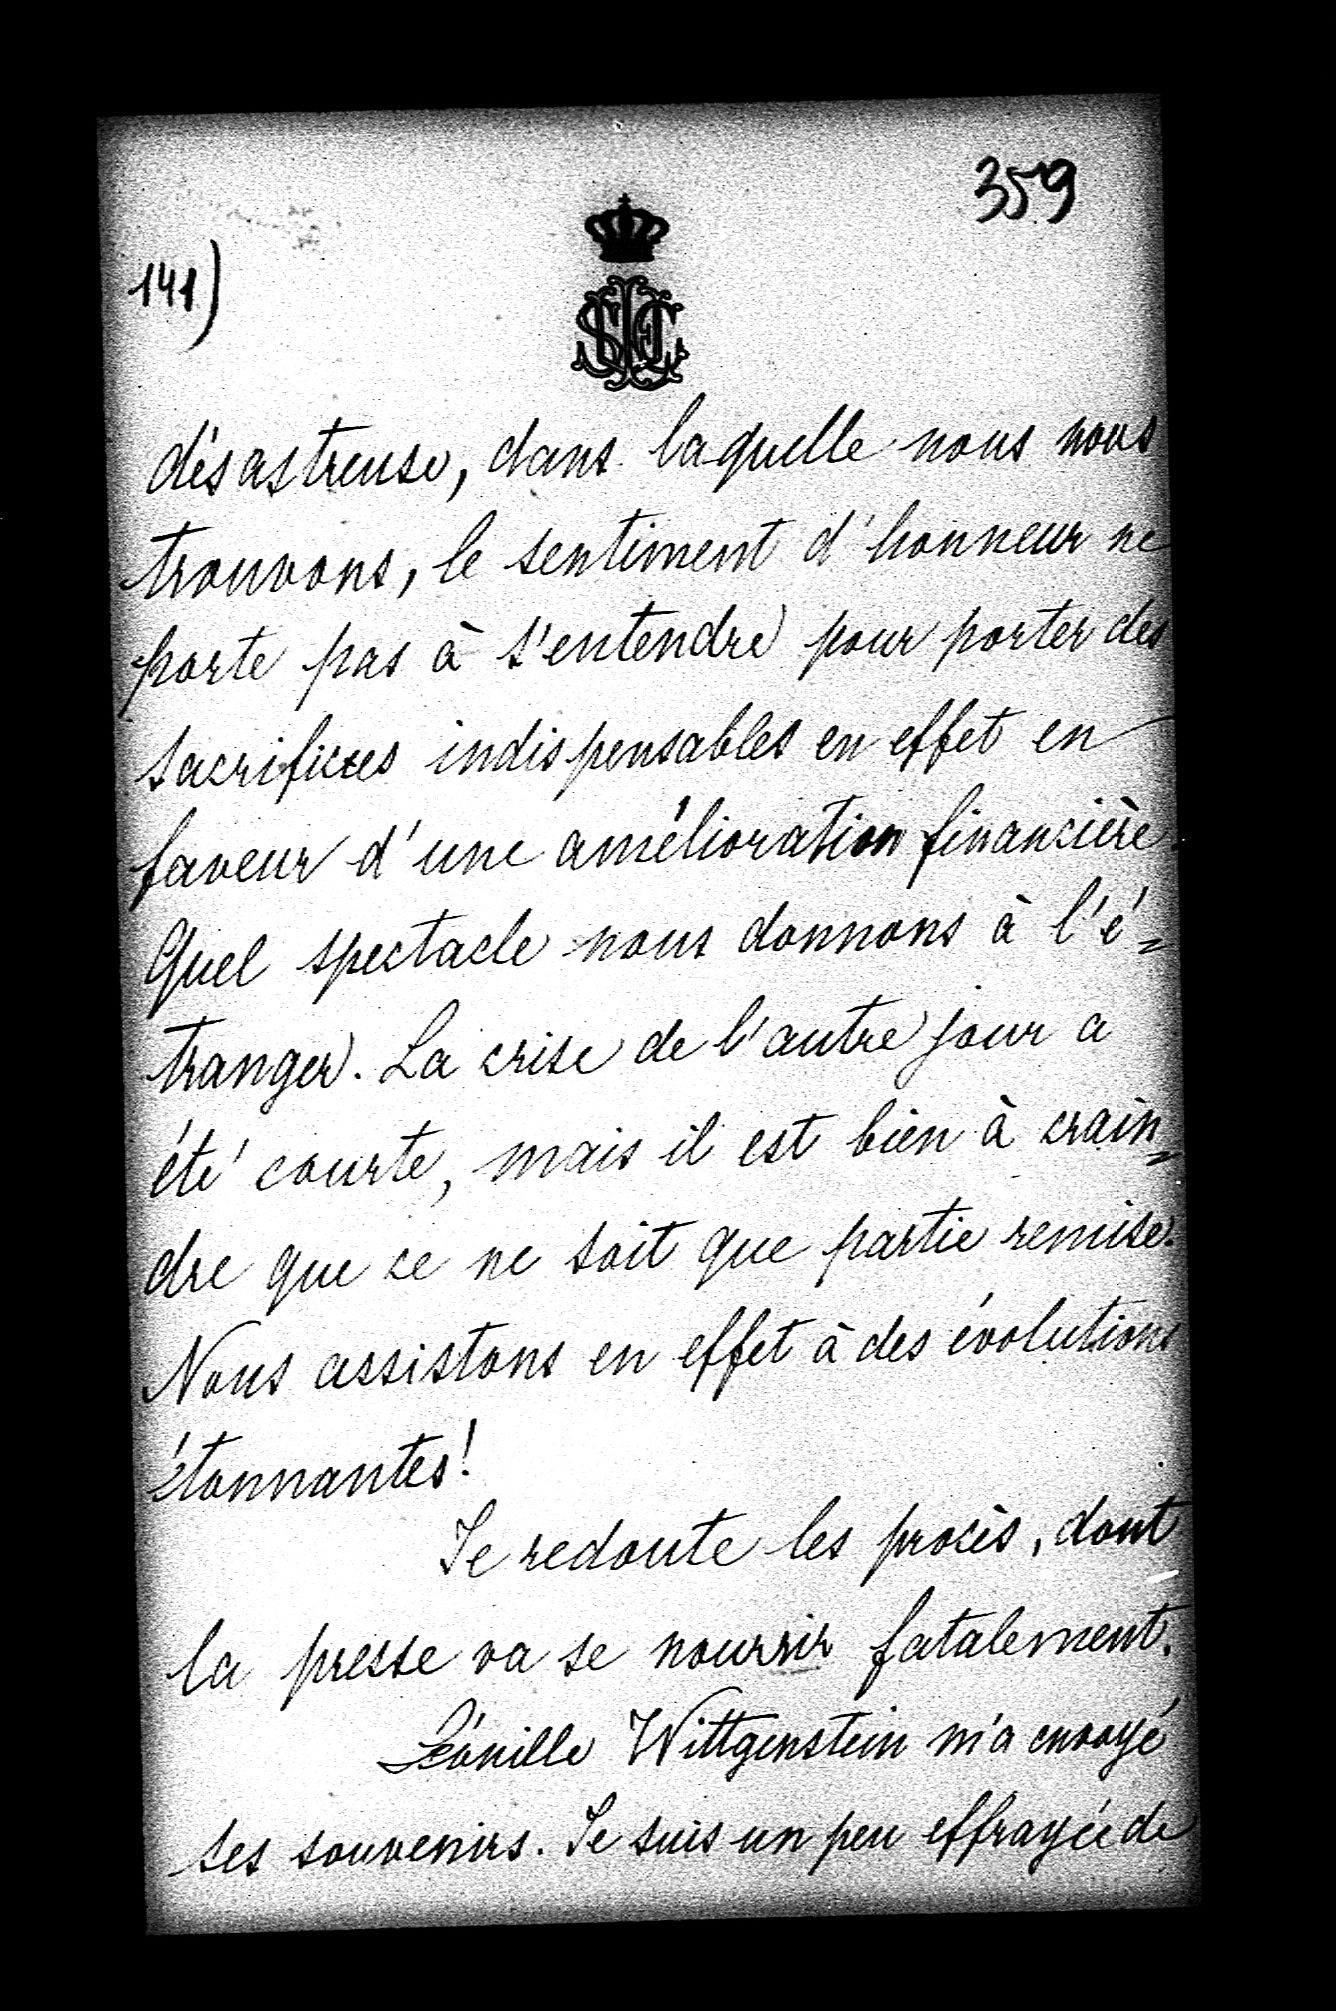 359
141)
désastreuse, dans laquelle nous nous
trouvons, le sentiment d'honneur ne
porte pas à s'entendre pour porter des
sacrifices indispensables en effet en
faveur d'une amélioration financière.
Quel spectacle nous donnons à l'é=
tranger. La crise de l'autre jour a
été courte, mais il est bien à crain=
dre que ce ne soit que partie remise.
Nous assistons en effet à des évolutions
étonnantes!
Je redoute les procès, dont
la presse va se nourrir fatalement.
Léonille Wittgenstein m'a envoyé
ses souvenirs. Je suis un peu effrayée de